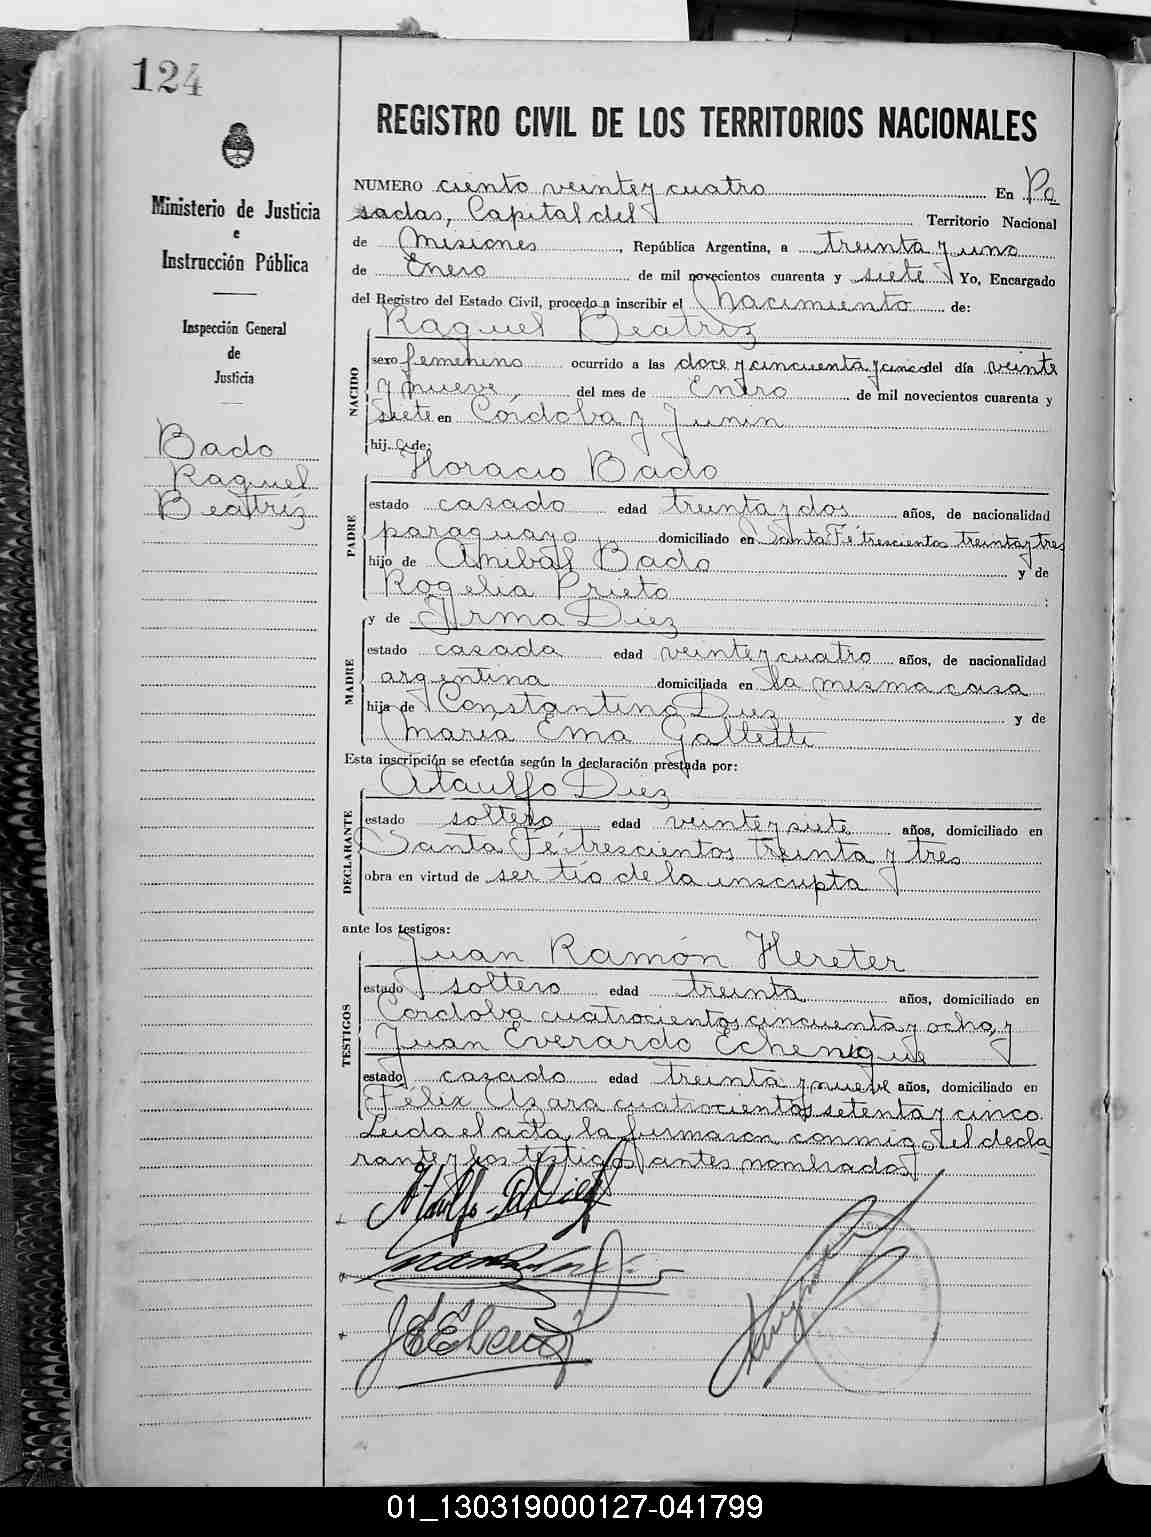 124
REGISTRO CIVIL DE LOS TERRITORIOS NACIONALES
Ministerio de Justicia
e
Instrucción Pública
Inspección General
de
Justicia
Bado
Raquel
Beatriz
NUMERO ciento veinte y cuatro En Po
sadas, Capital del Territorio Nacional
de Misiones, República Argentina, a treinta y uno
de Enero de mil novecientos cuarenta y siete Yo, Encargado
del Registro del Estado Civil, procedo a inscribir el Nacimiento de:
Raquel Beatriz
NACIDO
sexo femenino ocurrido a las doce y cincuenta y cinco del día veinte
y nueve del mes de Enero de mil novecientos cuarenta y
siete en Córdoba y Junin
hij a de:
Horacio Bado
PADRE
estado casado edad treinta y dos años, de nacionalidad
paraguayo domiciliado en Santa Fé trescientos treinta y tres
hijo de Anibal Bado y de
Rogelia Prieto :
y de Irma Diez
MADRE
estado casada edad veinte y cuatro años, de nacionalidad
argentina domiciliada en la misma casa
hija de Constantino Diez y de
Maria Ema Galletti
Esta inscripción se efectúa según la declaración prestada por:
Ataulfo Diez
DECLARANTE
estado soltero edad veinte y siete años, domiciliado en
Santa Fé trescientos treinta y tres
obra en virtud de ser tío de la inscripta
ante los testigos:
Juan Ramón Hereter
TESTIGOS
estado soltero edad treinta años, domiciliado en
Cordoba cuatrocientos cincuenta y ocho, y
Juan Everardo Echenique
estado casado edad treinta y nueve años, domiciliado en
Félix Azara cuatrocientos setenta y cinco
Leida el acta, la firmaron conmigo el decla
rante y los testigos antes nombrados
01_130319000127-041799